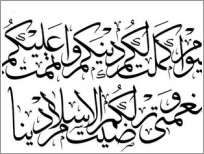 يوم اكملت لكم دينكم واتممت عليكم
نعمتي ورضيت لكم الاسلام دينا